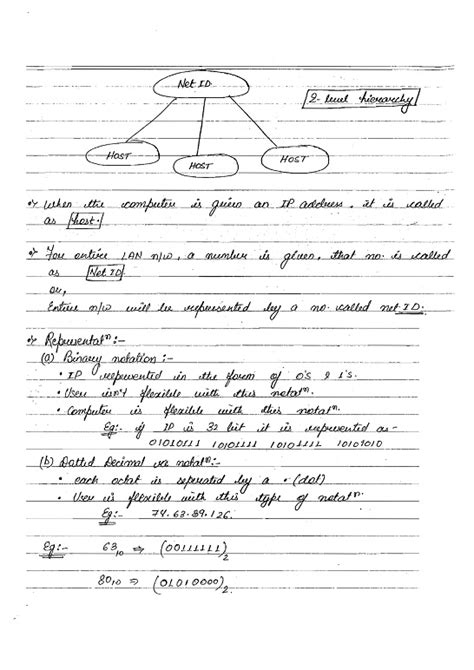 Net ID
2-level hierarchy
HOST
HOST
HOST
When the computer is given an IP address, it is called
as host.
For entire LAN n/w, a number is given, that no. is called
as Net ID
or,
Entire n/w will be represented by a no. called net ID.
Representatn:-
(a) Binary notation :-
• IP represented in the form of 0's & 1's.
• User isn't flexible with this notatn.
• Computer is flexible with this notatn.
Eg:- if IP is 32 bit it is represented as-
01010111 10101111 10101111 10101010
(b) Dotted Decimal notatn:-
• each octat is seperated by a • (dot)
• User is flexible with this type of notatn.
Eg:- 74.63.89.126.
Eg:- 63₁₀ ⇒ (00111111)₂
80₁₀ ⇒ (01010000)₂.